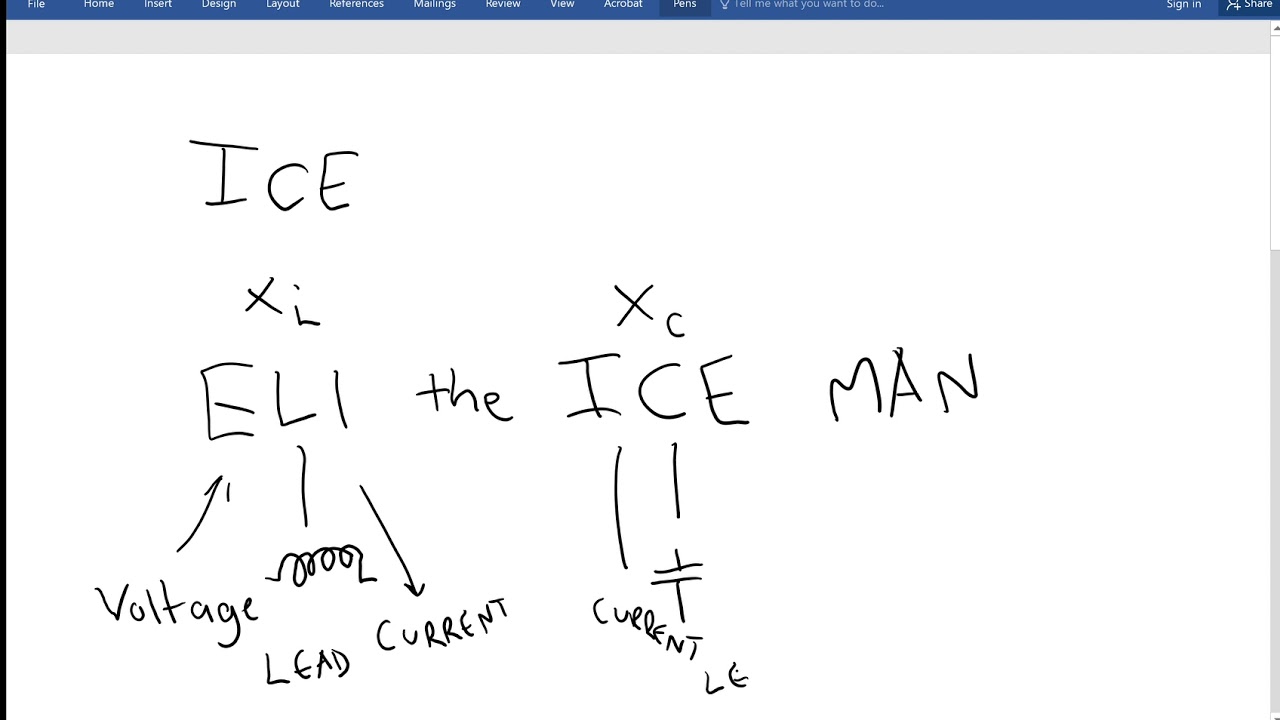 File Home Insert Design Layout References Mailings Review View Acrobat Pens Tell me what you want to do... Sign in Share
ICE
XL XC
ELI the ICE MAN
Voltage CURRENT CURRENT
LEAD LE